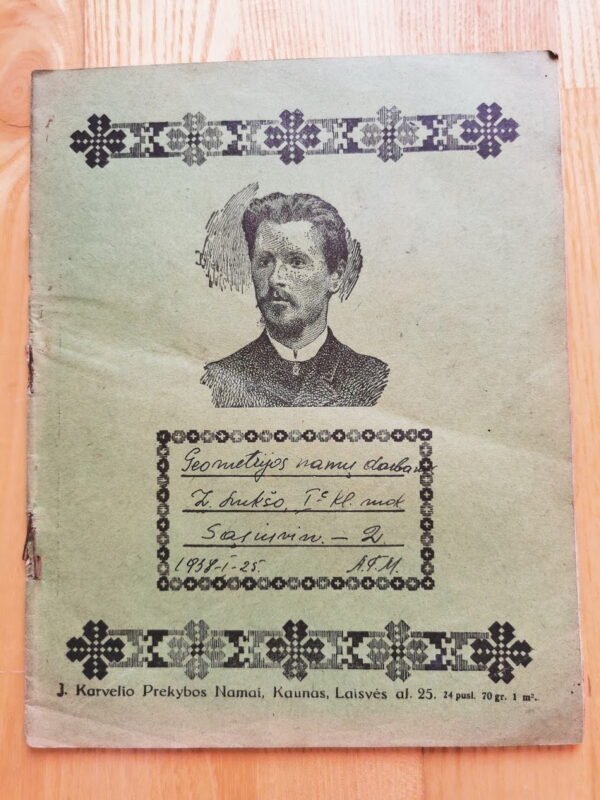 Geometrijos namų darbams
Z. Lukšo, I c kl. mok
Sąsiuvin. – 2.
1938-I-25. A.P.M.
J. Karvelio Prekybos Namai, Kaunas, Laisvės al. 25. 24 pusl. 70 gr. 1 m².